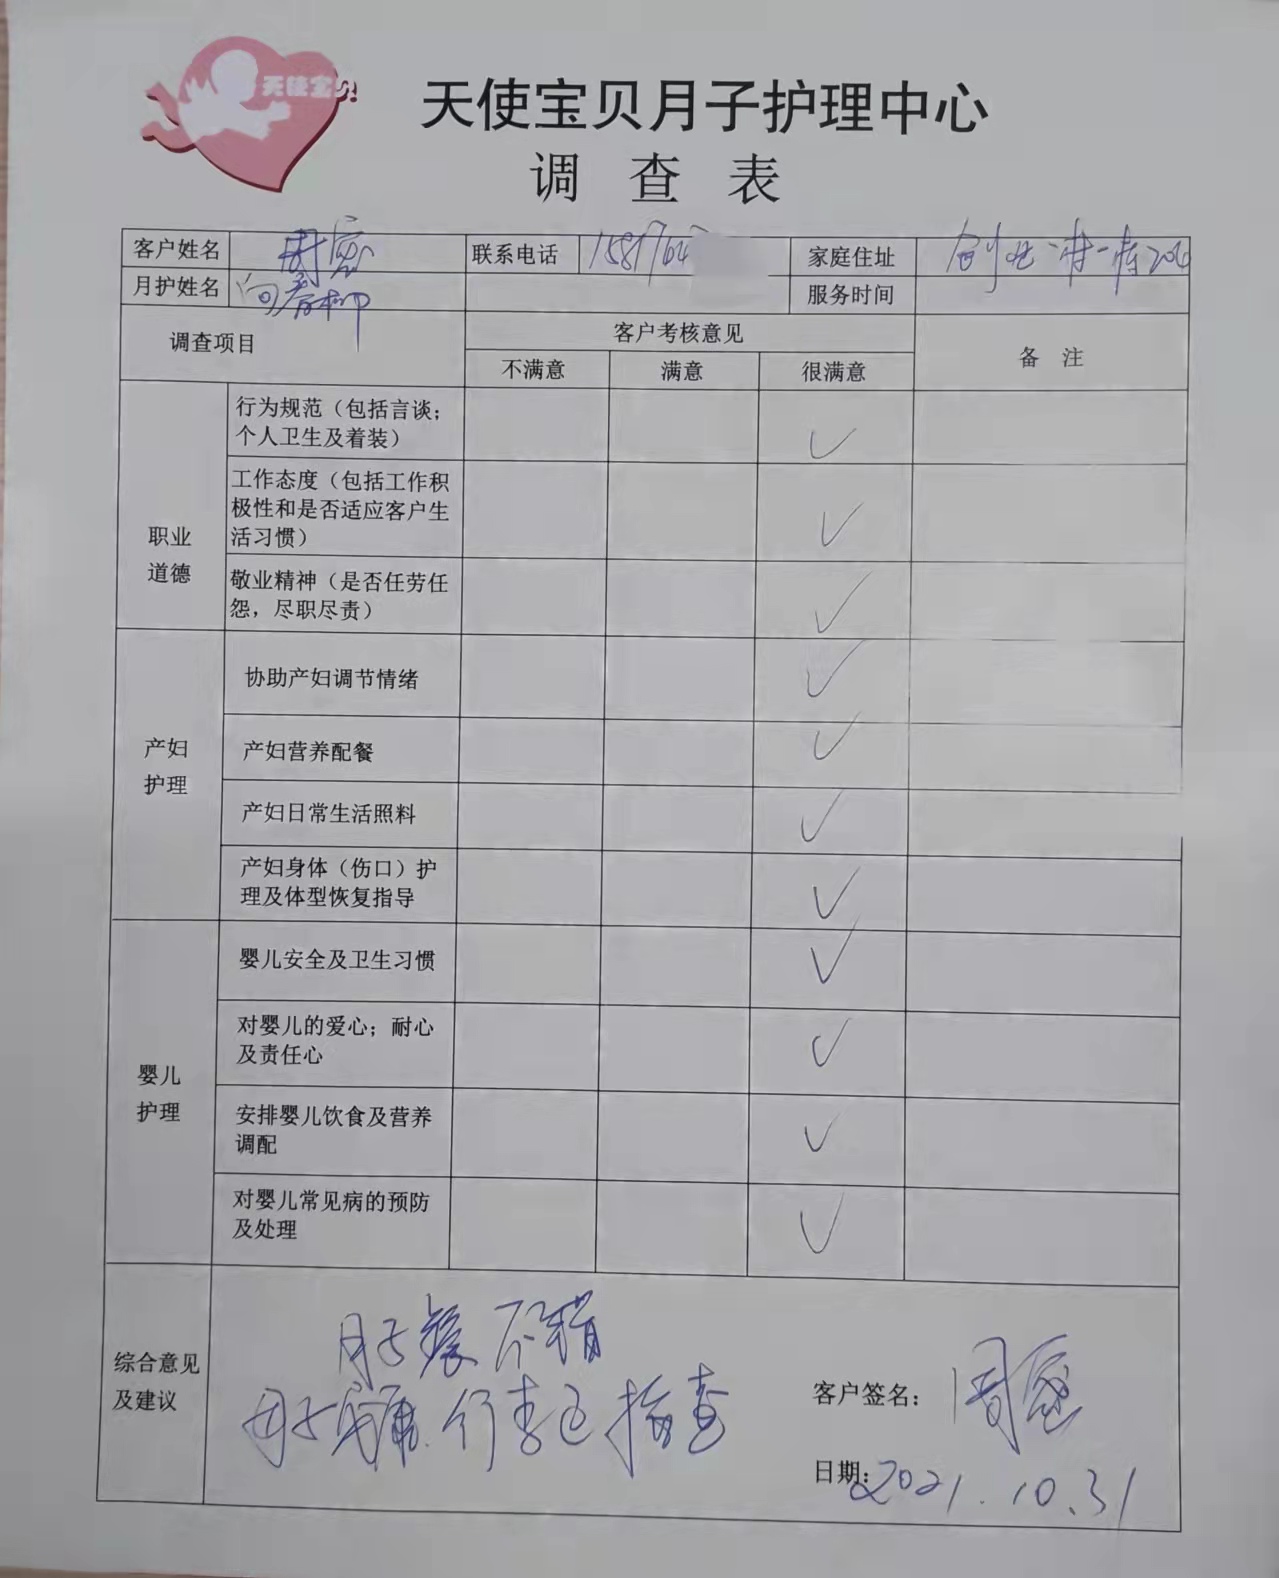 天使宝贝
天使宝贝月子护理中心
调查表
客户姓名 联系电话 1581764 家庭住址
月护姓名 向春柳 服务时间
调查项目 客户考核意见 备 注
不满意 满意 很满意
职业
道德
行为规范（包括言谈；
个人卫生及着装）
工作态度（包括工作积
极性和是否适应客户生
活习惯）
敬业精神（是否任劳任
怨，尽职尽责）
产妇
护理
协助产妇调节情绪
产妇营养配餐
产妇日常生活照料
产妇身体（伤口）护
理及体型恢复指导
婴儿
护理
婴儿安全及卫生习惯
对婴儿的爱心；耐心
及责任心
安排婴儿饮食及营养
调配
对婴儿常见病的预防
及处理
综合意见
及建议
月子餐不错
客户签名：周
日期：2021.10.31